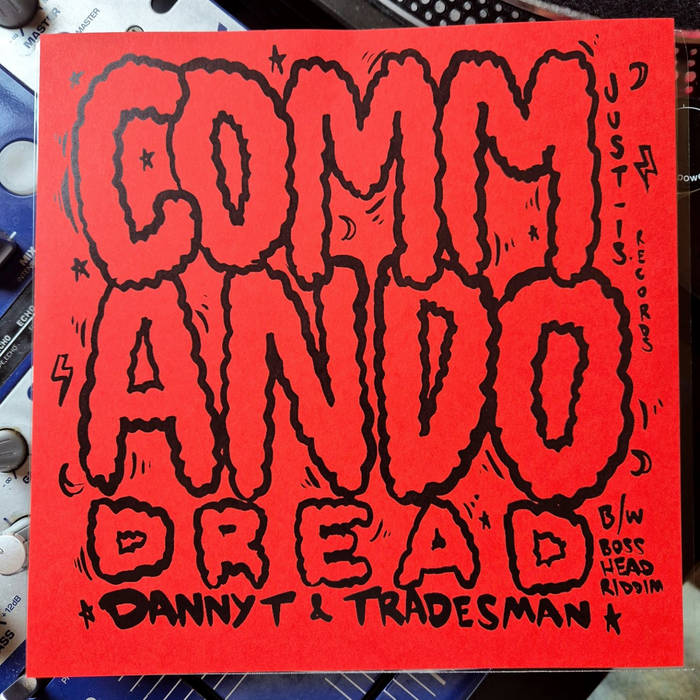 COMM
ANDO
DREAD
DANNY T & TRADESMAN
JUST-IS
RECORDS
B/W
BOSS
HEAD
RIDDIM
MASTER
MASTER
ECHO
+12dB